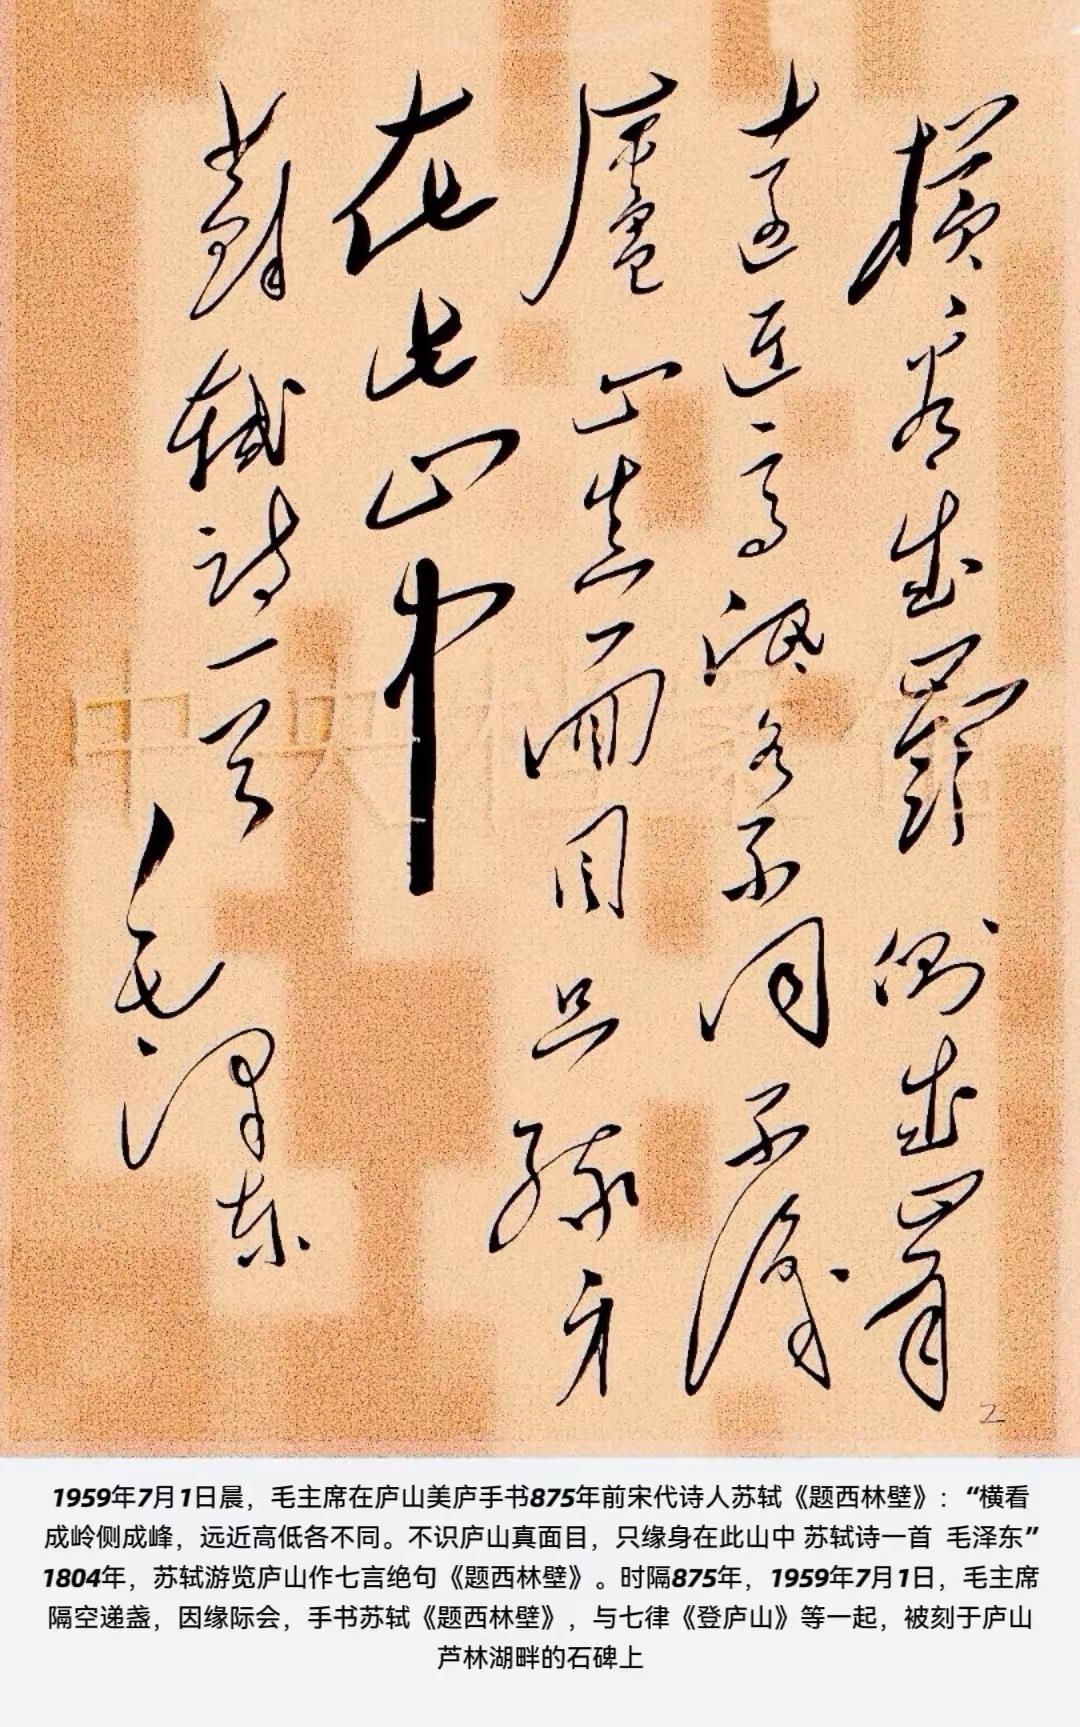 横看成嶺側成峯
遠近高低各不同不識
廬山真面目只緣身
在此山中
蘇軾詩一首
毛澤東
中央
2
1959年7月1日晨，毛主席在庐山美庐手书875年前宋代诗人苏轼《题西林壁》：“横看
成岭侧成峰，远近高低各不同。不识庐山真面目，只缘身在此山中 苏轼诗一首 毛泽东”
1804年，苏轼游览庐山作七言绝句《题西林壁》。时隔875年，1959年7月1日，毛主席
隔空递盏，因缘际会，手书苏轼《题西林壁》，与七律《登庐山》等一起，被刻于庐山
芦林湖畔的石碑上